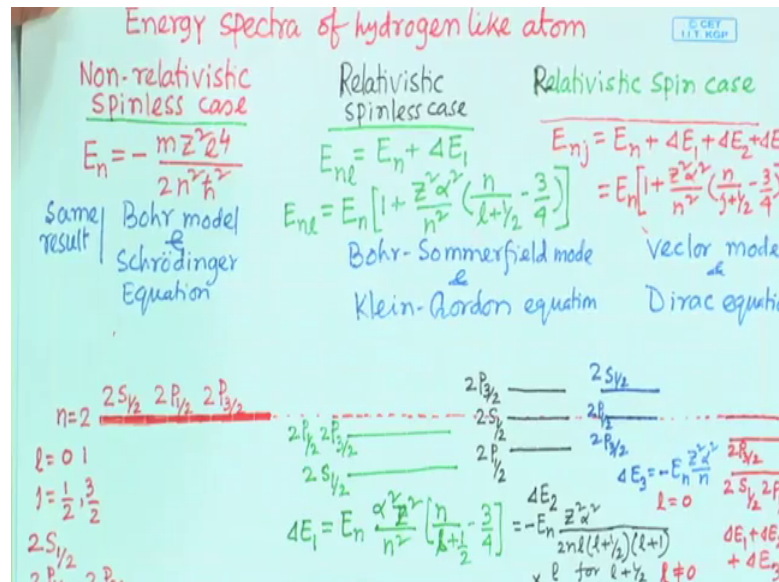 Energy spectra of hydrogen like atom
© CET
I.I.T. KGP
Non-relativistic
spinless case
E_n = - mz²e⁴ / 2n²ħ²
Same result
Bohr model
&
Schrödinger
Equation
Relativistic
spinless case
E_nl = E_n + ΔE₁
E_nl = E_n [1 + z²α²/n² (n/(l+1/2) - 3/4)]
Bohr-Sommerfield mode
&
Klein-Gordon equation
Relativistic Spin case
E_nj = E_n + ΔE₁ + ΔE₂ + ΔE
= E_n [1 + z²α²/n² (n/(j+1/2) - 3/4)
Vector mode
&
Dirac equatio
n=2 2S₁/₂ 2P₁/₂ 2P₃/₂
l = 0 1
j = 1/2, 3/2
2S₁/₂
2P₁/₂ 2P₃/₂
2P₁/₂ 2P₃/₂
2S₁/₂
ΔE₁ = E_n α²z²/n² [n/(l+1/2) - 3/4]
2P₃/₂
2S₁/₂
2P₁/₂
ΔE₂
= -E_n z²α² / 2nl(l+1/2)(l+1)
x l for l+1/2 l≠0
2S₁/₂
2P₁/₂
2P₃/₂
ΔE₃ = -E_n z²α²/n
l=0
2P₃/₂
2S₁/₂ 2P
ΔE₁+ΔE
+ΔE₃